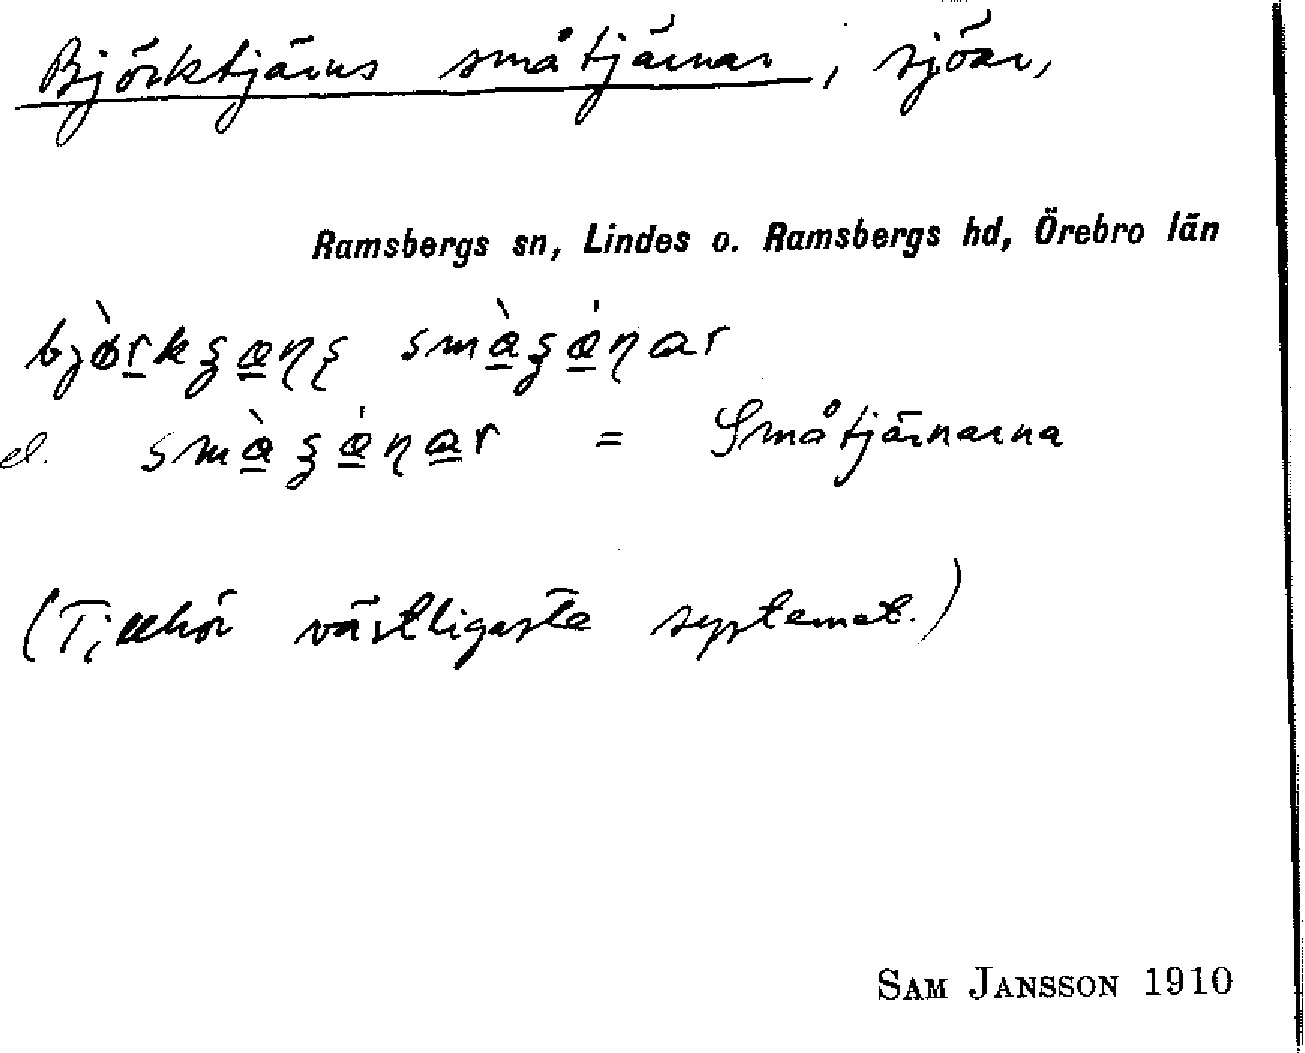 Björktjärns småtjärnar, sjöar,
Ramsbergs sn, Lindes o. Ramsbergs hd, Örebro län
el. = Småtjärnarna
(Tillhör västligaste systemet.)
SAM JANSSON 1910